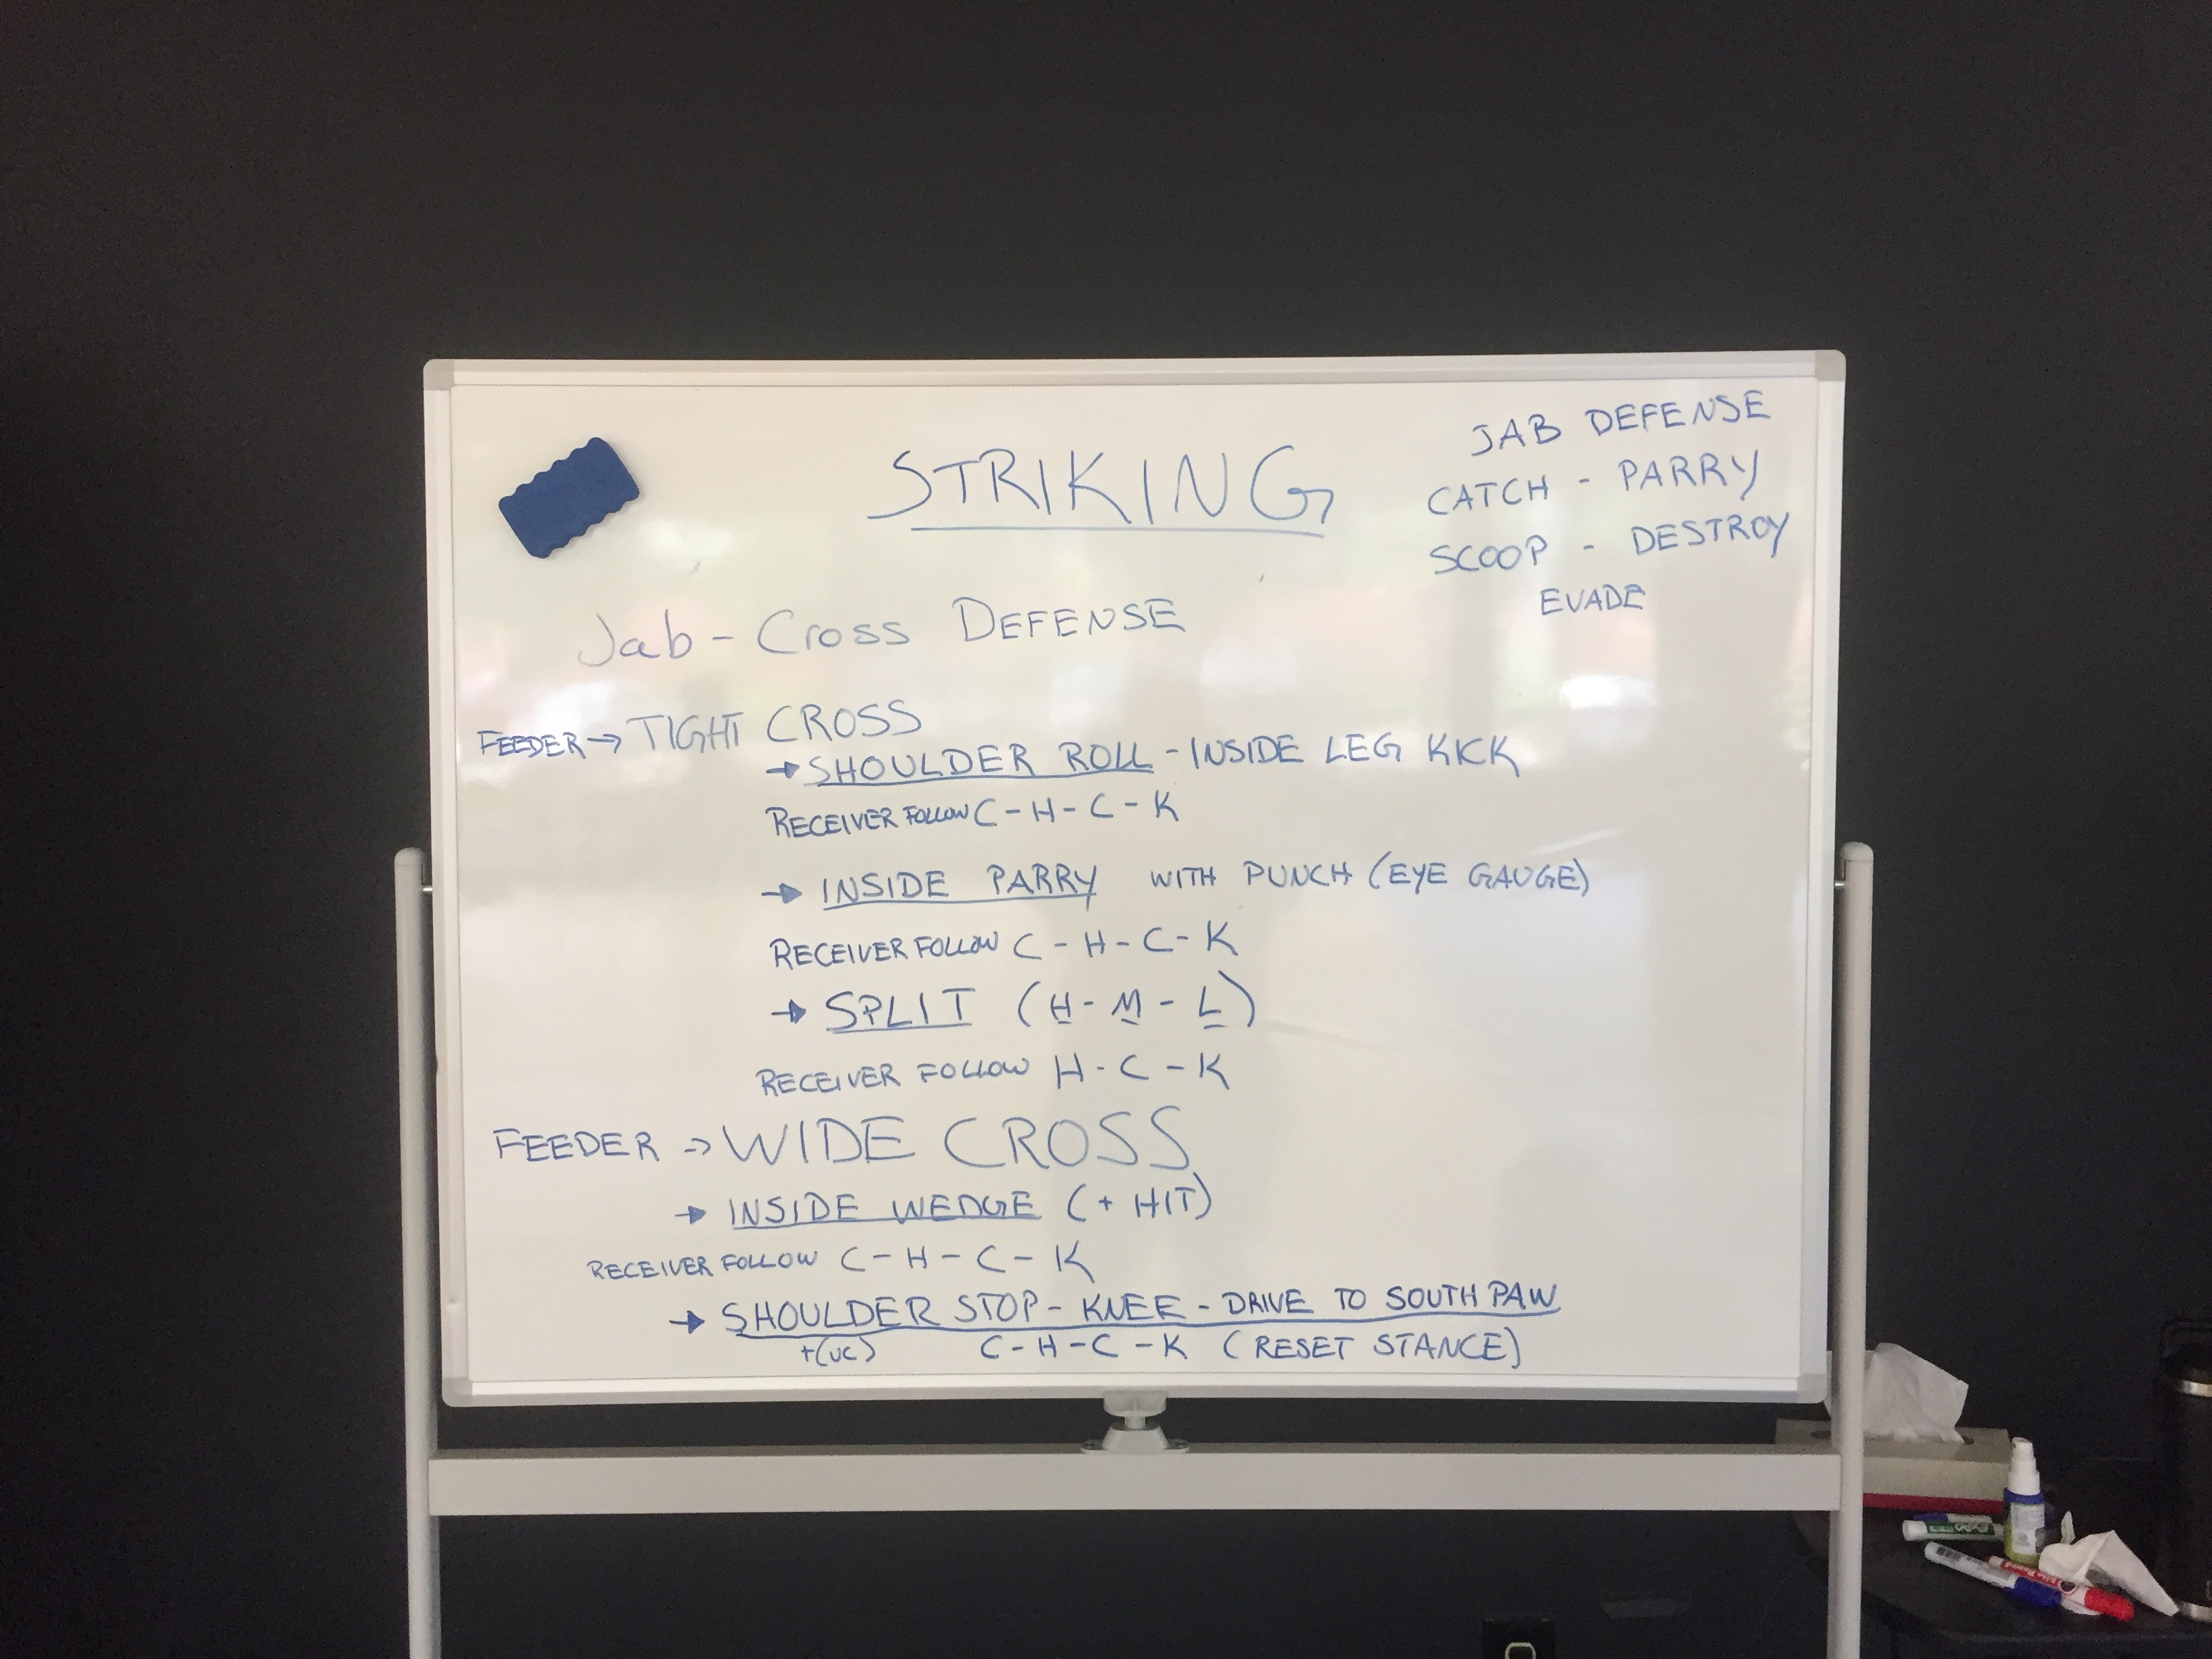 STRIKING
JAB DEFENSE
CATCH - PARRY
SCOOP - DESTROY
EVADE
Jab - Cross DEFENSE
FEEDER → TIGHT CROSS
→ SHOULDER ROLL - INSIDE LEG KICK
RECEIVER FOLLOW C - H - C - K
→ INSIDE PARRY WITH PUNCH (EYE GAUGE)
RECEIVER FOLLOW C - H - C - K
→ SPLIT (H - M - L)
RECEIVER FOLLOW H - C - K
FEEDER → WIDE CROSS
→ INSIDE WEDGE (+ HIT)
RECEIVER FOLLOW C - H - C - K
→ SHOULDER STOP - KNEE - DRIVE TO SOUTH PAW
+(UC) C - H - C - K (RESET STANCE)